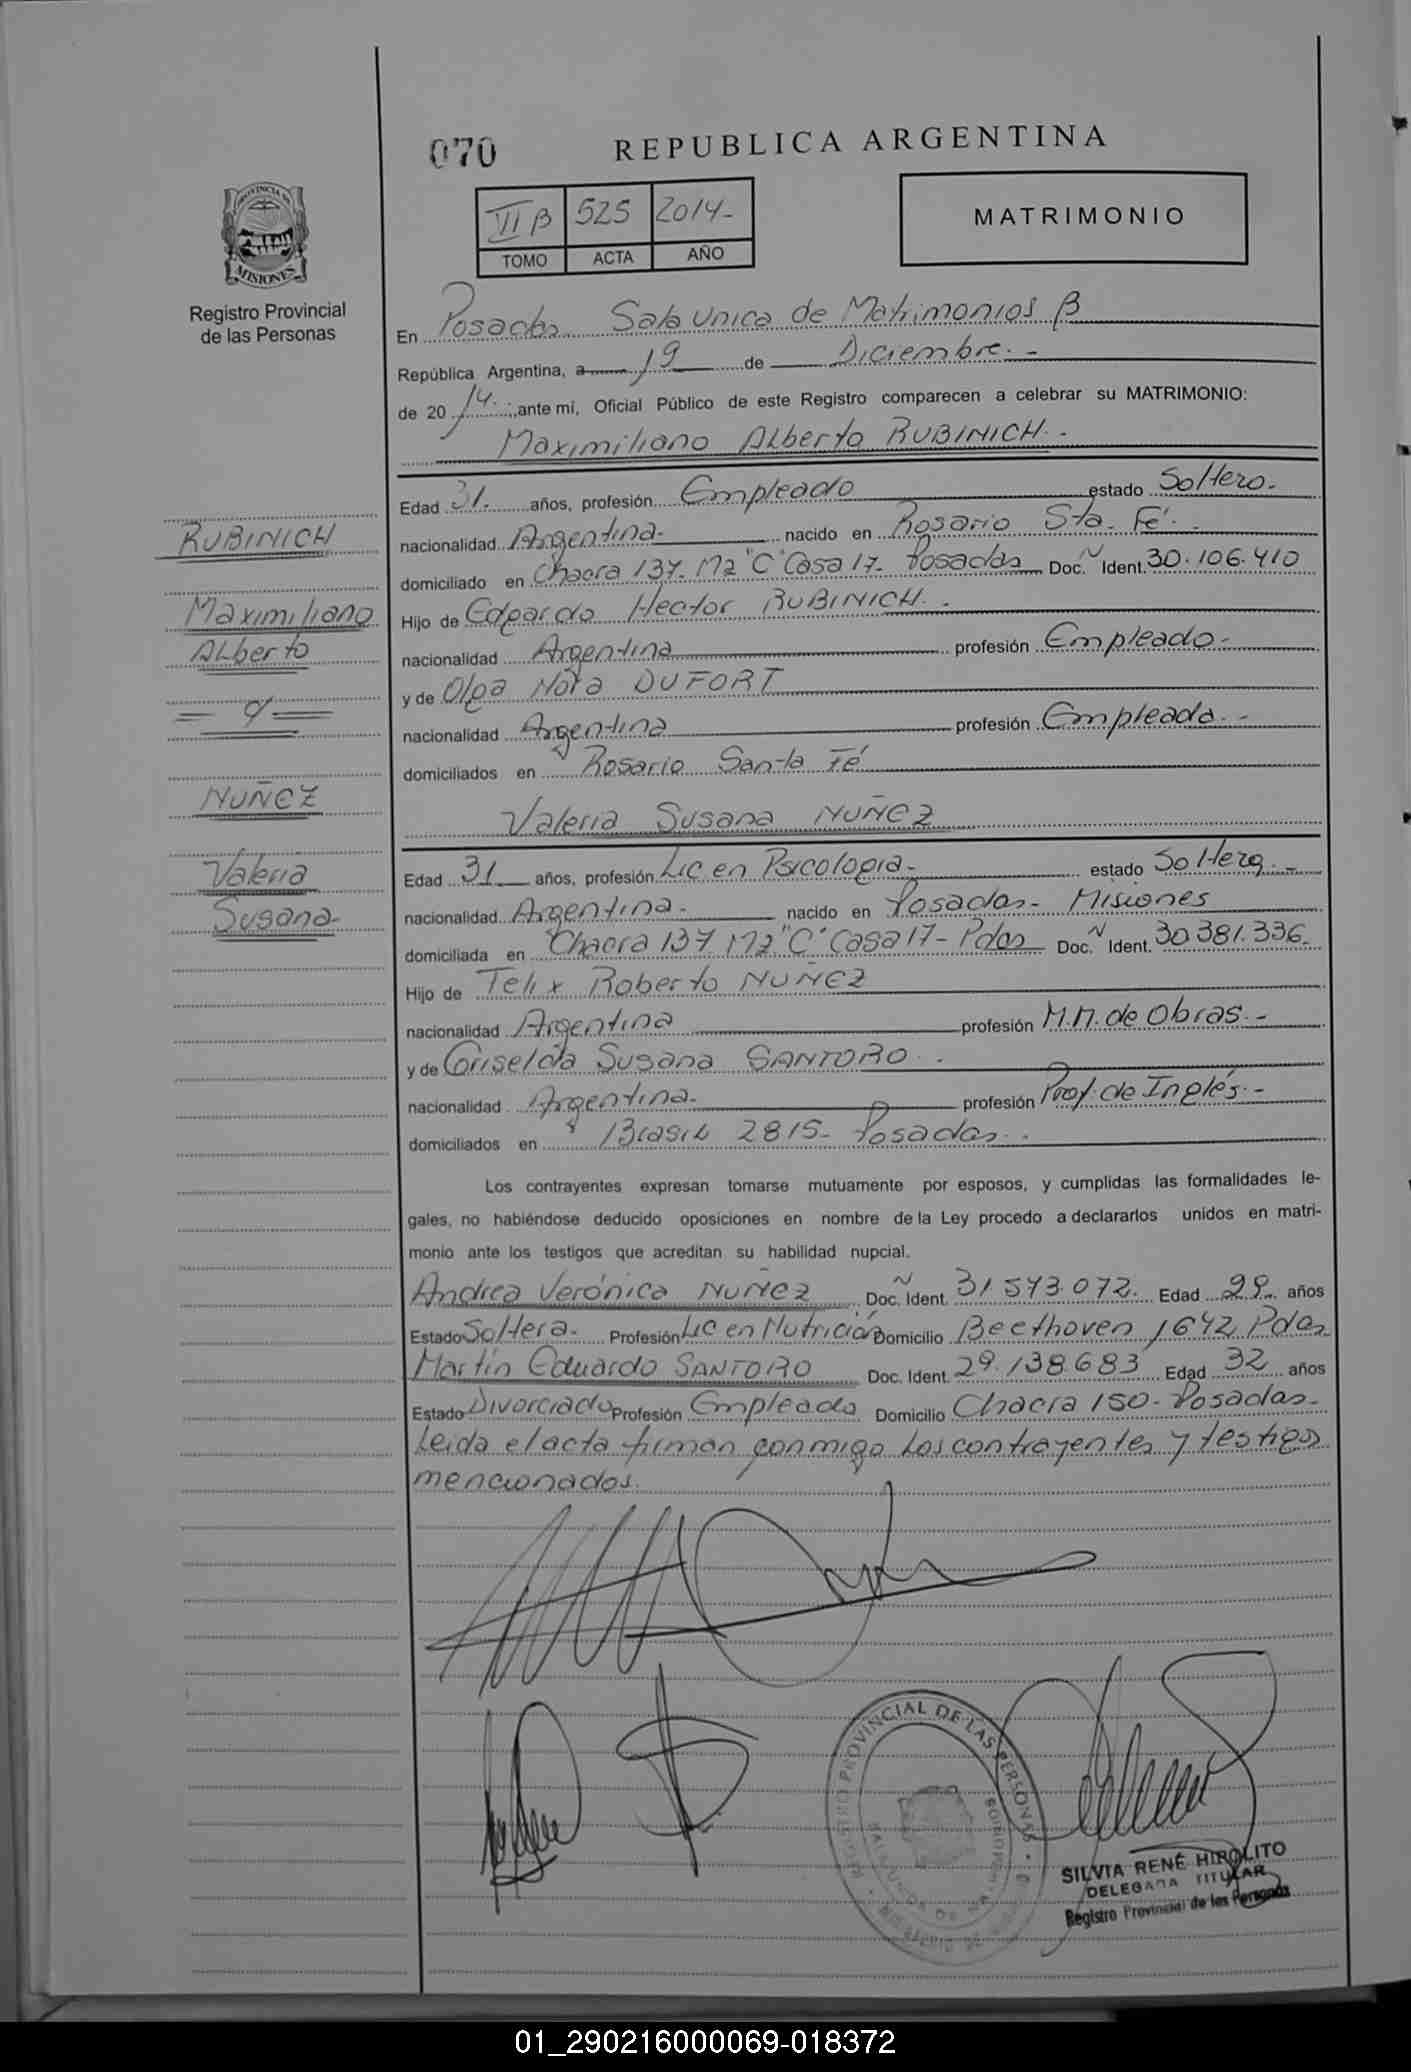 070
REPUBLICA ARGENTINA
VI B 525 2014-
TOMO ACTA AÑO
MATRIMONIO
PROVINCIA DE
MISIONES
Registro Provincial
de las Personas
En Posadas Sala Unica de Matrimonios B
República Argentina, a 19 de Diciembre.-
de 20 14. ante mí, Oficial Público de este Registro comparecen a celebrar su MATRIMONIO:
Maximiliano Alberto RUBINICH.-
Edad 31. años, profesión Empleado estado Soltero.-
RUBINICH
nacionalidad Argentina.- nacido en Rosario Sta. Fé.-
domiciliado en Chacra 137. Mz "C" Casa 17- Posadas Doc. Ident. 30.106.410
Maximiliano
Hijo de Edgardo Hector RUBINICH.
Alberto
nacionalidad Argentina profesión Empleado.-
y de Olga Nora DUFORT
= y =
nacionalidad Argentina profesión Empleada.-
domiciliados en Rosario Santa Fé
NUÑEZ
Valeria Susana NUÑEZ
Valeria
Edad 31 años, profesión Lic en Psicologia.- estado Soltera.-
Susana-
nacionalidad Argentina.- nacido en Posadas- Misiones
domiciliada en Chacra 137 Mz "C" Casa 17- Pdas Doc. Ident. 30.381.336.
Hijo de Felix Roberto NUÑEZ
nacionalidad Argentina profesión M.M. de Obras.-
y de Griselda Susana SANTORO.
nacionalidad Argentina.- profesión Prof. de Inglés.-
domiciliados en Brasil 2815- Posadas.
Los contrayentes expresan tomarse mutuamente por esposos, y cumplidas las formalidades le-
gales, no habiéndose deducido oposiciones en nombre de la Ley procedo a declararlos unidos en matri-
monio ante los testigos que acreditan su habilidad nupcial.
Andrea Verónica NUÑEZ Doc. Ident. 31 573.072. Edad 29. años
Estado Soltera. Profesión Lic en Nutrición Domicilio Beethoven 1642 Pdas
Martín Eduardo SANTORO Doc. Ident. 29.138.683 Edad 32 años
Estado Divorciado Profesión Empleado Domicilio Chacra 150- Posadas-
Leida el acta firman conmigo Los contrayentes y testigos
mencionados.
REGISTRO PROVINCIAL DE LAS PERSONAS
SILVIA RENÉ HIPOLITO
DELEGADA TITULAR
Registro Provincial de las Personas
01_290216000069-018372